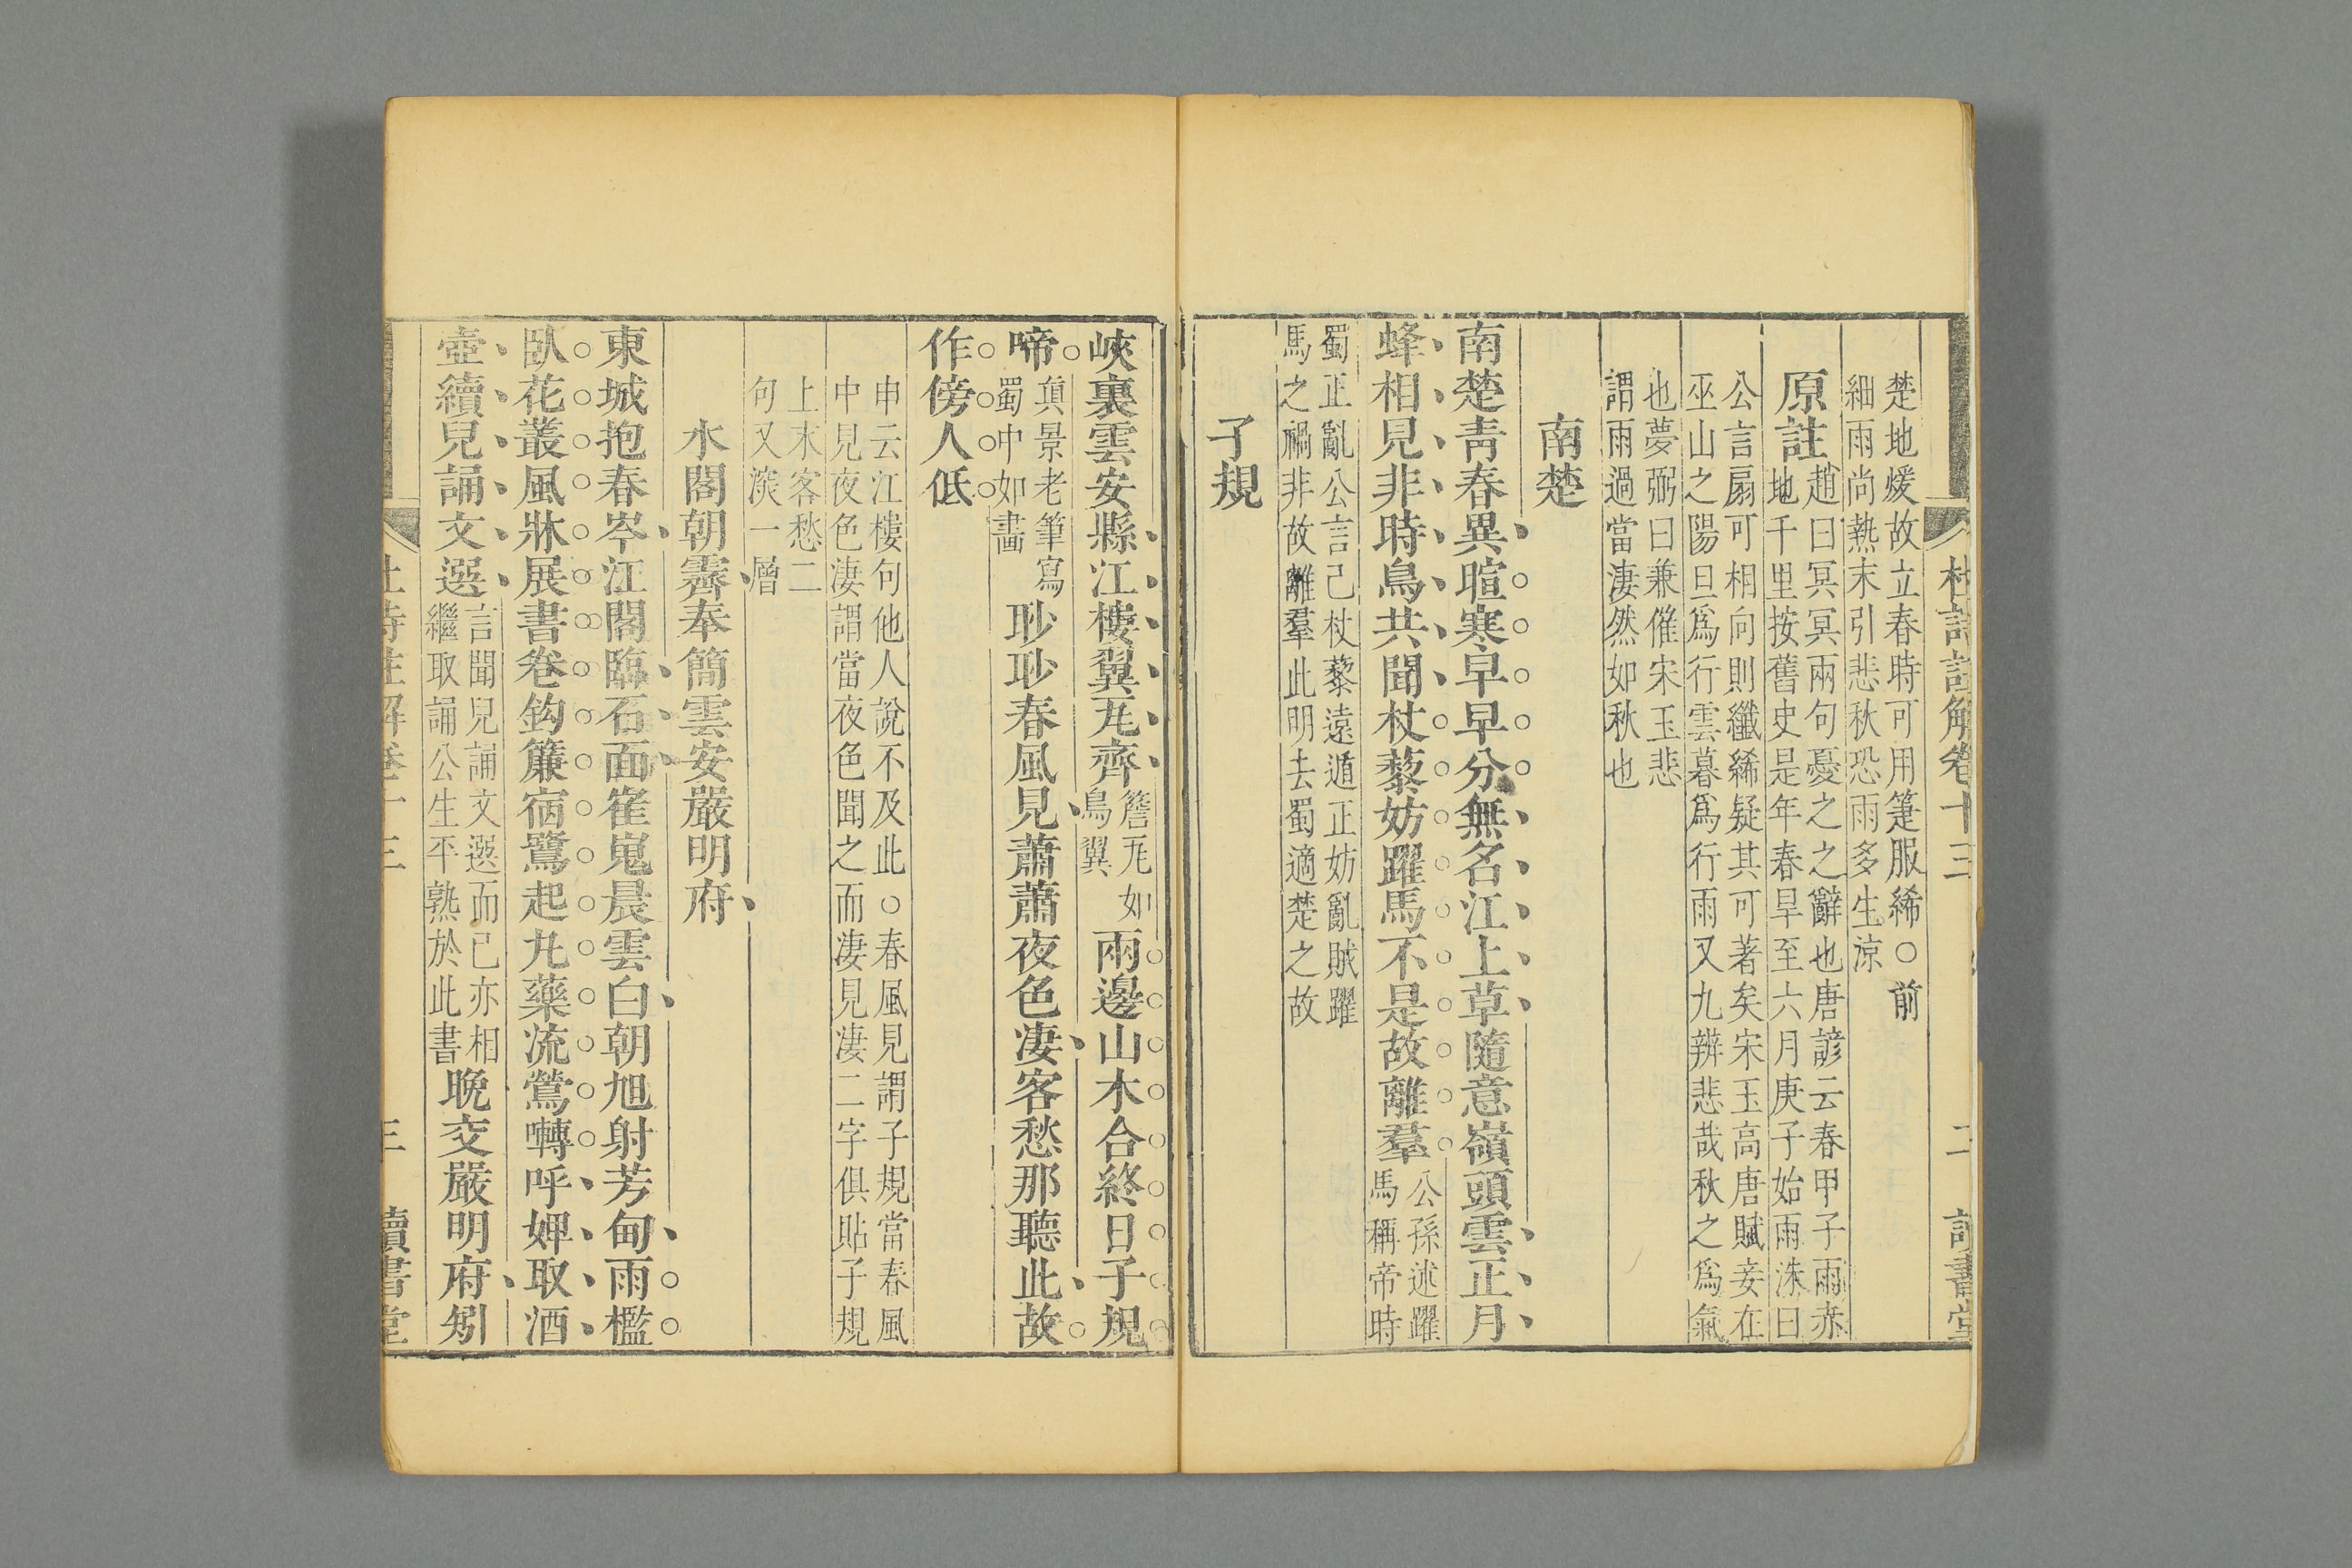 杜詩註解卷十三 二 讀書堂
楚地煖故立春時可用箑服絺○前
細雨尚熱末引悲秋恐雨多生涼
原註
趙曰冥冥兩句憂之之辭也唐諺云春甲子雨赤
地千里按舊史是年春旱至六月庚子始雨洙曰
公言扇可相向則纖絺疑其可著矣宋玉高唐賦妾在
巫山之陽旦爲行雲暮爲行雨又九辨悲哉秋之爲氣
也夢弼曰兼催宋玉悲
謂雨過當淒然如秋也
南楚
南楚青春異暄寒早早分無名江上草隨意嶺頭雲正月
蜂相見非時鳥共聞杖藜妨躍馬不是故離羣
公孫述躍
馬稱帝時
蜀正亂公言己杖藜遠遁正妨亂賊躍
馬之禍非故離羣此明去蜀適楚之故
子規
峽裏雲安縣江樓翼瓦齊
簷瓦如
鳥翼
兩邊山木合終日子規
啼
真景老筆寫
蜀中如畵
眇眇春風見蕭蕭夜色淒客愁那聽此故
作傍人低
申云江樓句他人說不及此○春風見謂子規當春風
中見夜色淒謂當夜色聞之而淒見淒二字俱貼子規
上末客愁二
句又深一層
水閣朝霽奉簡雲安嚴明府
東城抱春岑江閣臨石面崔嵬晨雲白朝旭射芳甸雨檻
臥花叢風牀展書卷鈎簾宿鷺起丸藥流鶯囀呼婢取酒
壺續兒誦文選
言聞兒誦文選而已亦相
繼取誦公生平熟於此書
晚交嚴明府矧
杜詩註解卷十三 三 讀書堂